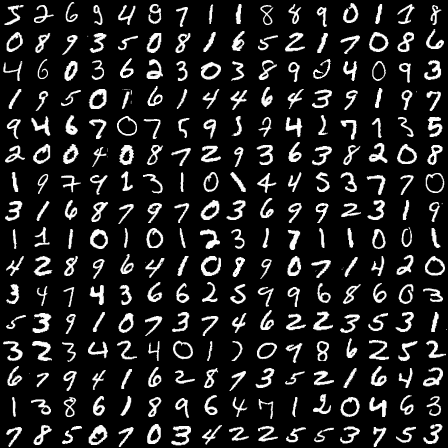 5 2 6 9 4 8 7 1 1 8 8 9 0 1 1 8
0 8 9 3 5 0 8 1 6 5 2 1 7 0 8 6
4 6 0 3 6 2 3 0 3 8 9 2 4 0 9 3
1 9 5 0 1 6 1 4 4 6 4 3 9 1 9 7
9 4 6 7 0 7 5 9 5 7 4 2 7 1 3 5
2 0 0 4 0 8 7 2 9 3 6 3 8 2 0 8
1 9 7 9 1 3 1 0 1 4 4 5 3 7 7 0
3 1 6 8 7 9 7 0 3 6 9 9 2 3 1 9
1 1 1 0 1 0 1 2 3 1 7 1 1 0 0 1
4 2 8 9 6 4 1 0 8 9 0 7 1 4 2 0
3 4 7 4 3 6 6 2 5 9 9 6 8 6 0 3
5 3 9 1 0 7 3 7 4 6 2 2 3 5 3 1
3 2 3 4 2 4 0 1 0 9 8 6 2 5 2
6 7 9 4 1 6 2 8 7 3 5 2 1 6 4 2
1 3 8 6 1 8 9 6 4 7 1 2 0 4 6 3
7 8 5 0 7 0 3 4 2 2 5 5 3 7 5 3